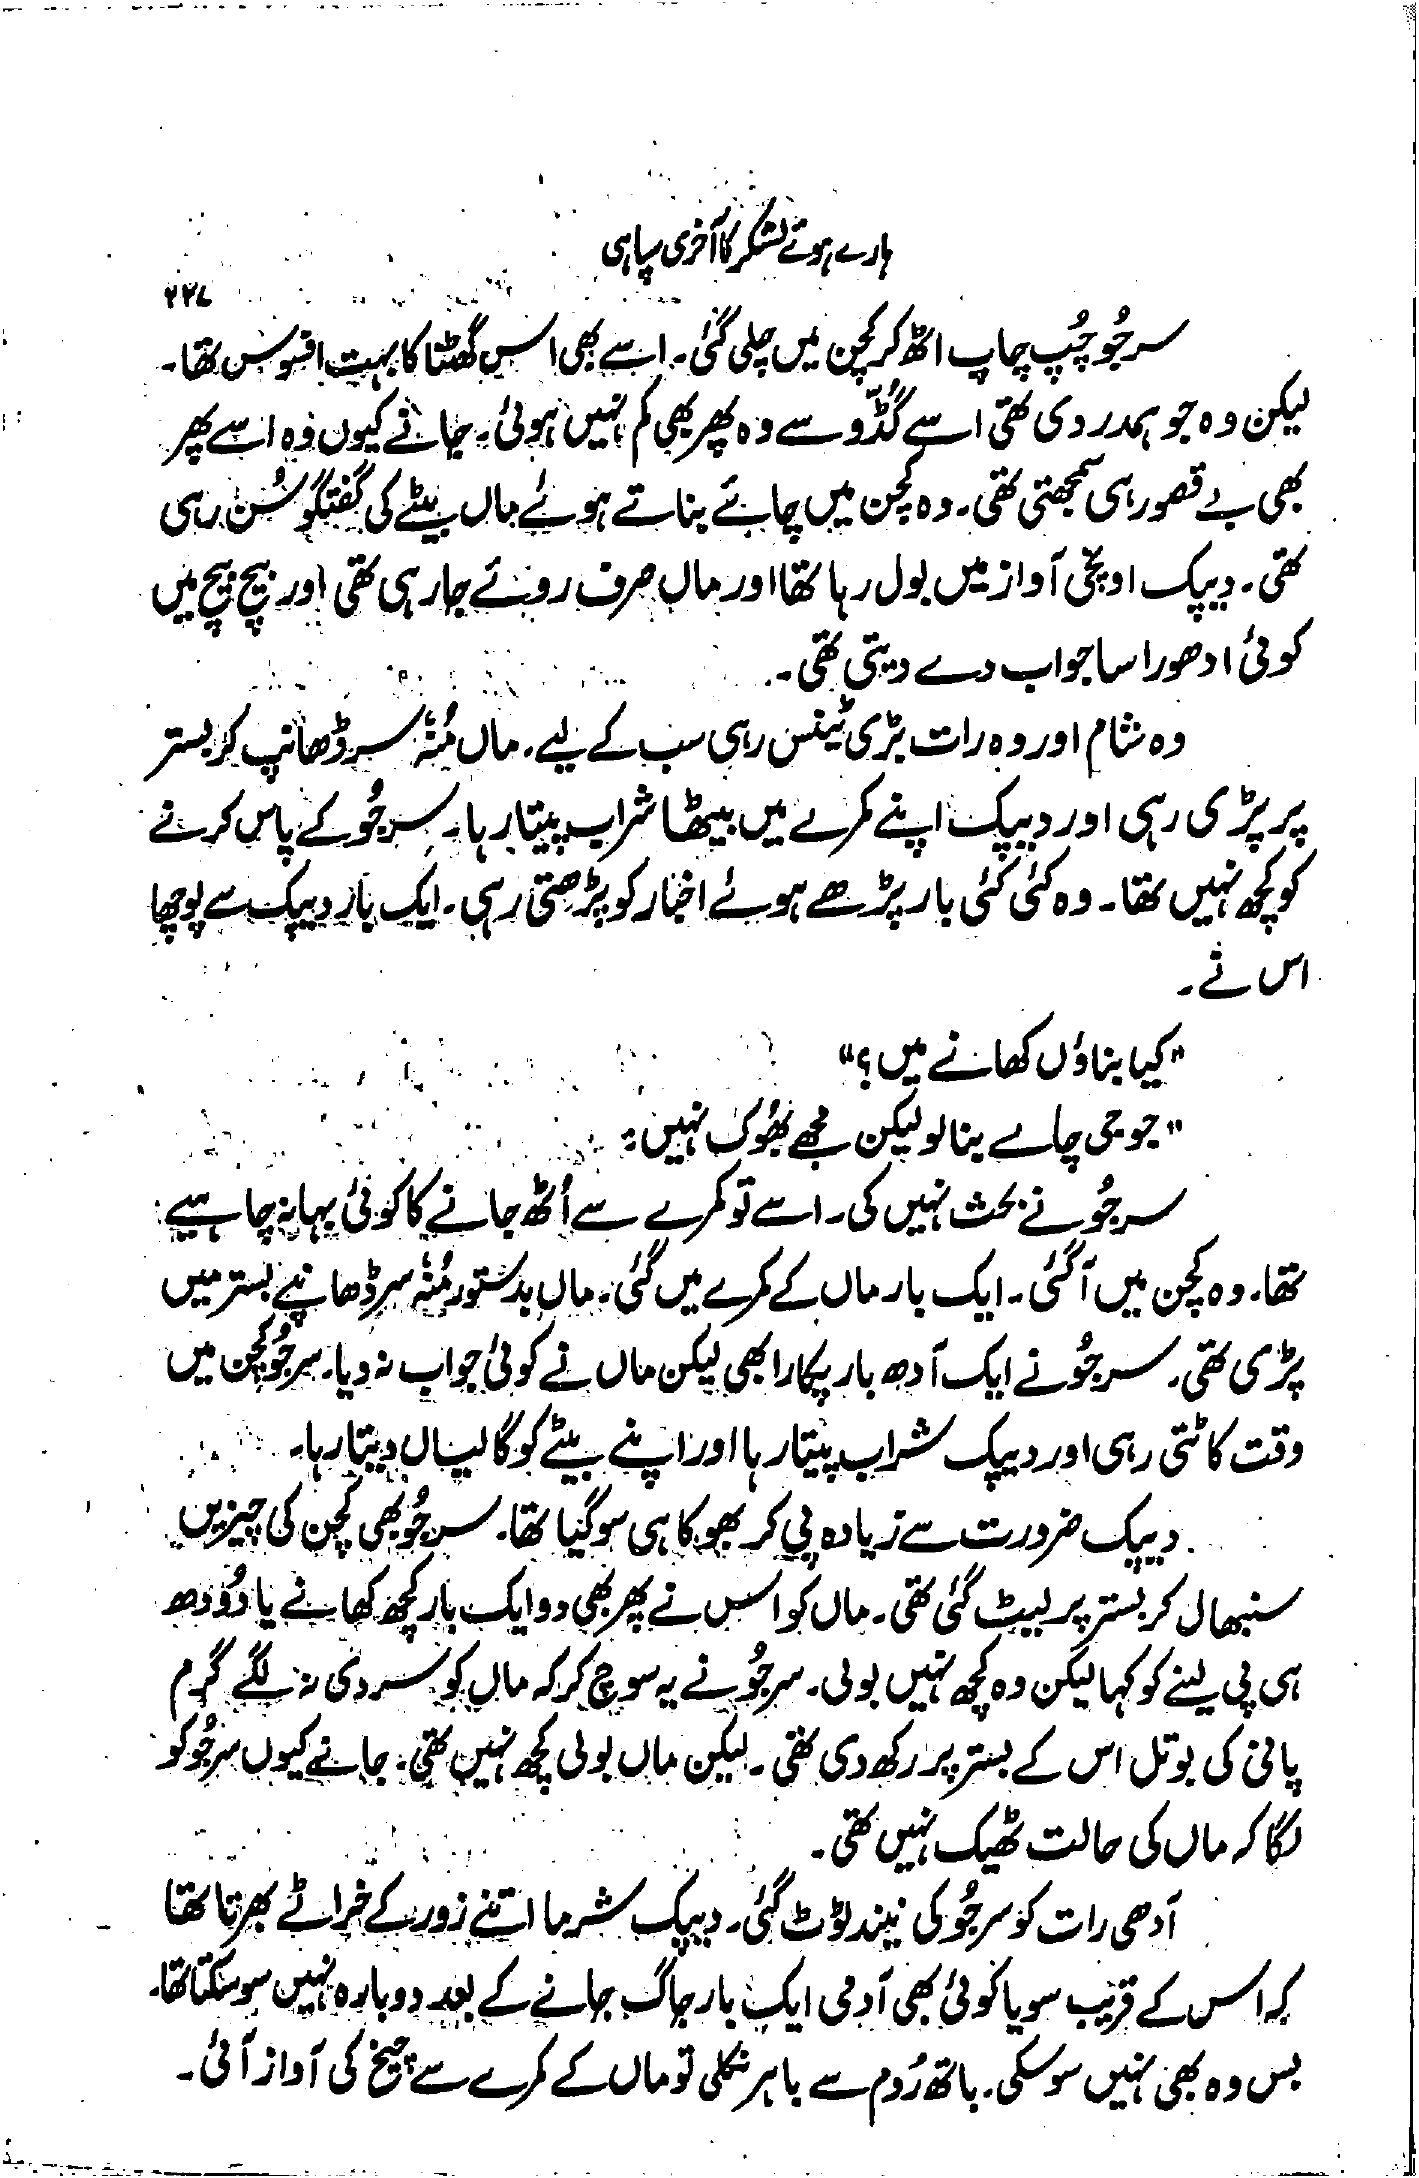 ہارے ہوئے لشکر کا آخری سپاہی
۲۲۷
سرجُو چُپ چاپ اٹھ کر کچن میں چلی گئی۔ اسے بھی اس گھٹنا کا بہت افسوس تھا۔
لیکن وہ جو ہمدردی تھی اسے گُڈّو سے وہ پھر بھی کم نہیں ہوئی۔ جانے کیوں وہ اسے پھر
بھی بے قصور ہی سمجھتی تھی۔ وہ کچن میں چائے بناتے ہوئے ماں بیٹے کی گفتگو سُن رہی
تھی۔ دیپک اونچی آواز میں بول رہا تھا اور ماں صرف روئے جا رہی تھی اور بیچ بیچ میں
کوئی ادھورا سا جواب دے دیتی تھی۔
وہ شام اور وہ رات بڑی ٹینس رہی سب کے لیے۔ ماں مُنہ سر ڈھانپ کر بستر
پر پڑی رہی اور دیپک اپنے کمرے میں بیٹھا شراب پیتا رہا۔ سرجُو کے پاس کرنے
کو کچھ نہیں تھا۔ وہ کئی کئی بار پڑھے ہوئے اخبار کو پڑھتی رہی۔ ایک بار دیپک سے پوچھا
اس نے۔
"کیا بناؤں کھانے میں؟"
"جو جی چاہے بنا لو لیکن مجھے بھُوک نہیں۔"
سرجُو نے بحث نہیں کی۔ اسے تو کمرے سے اُٹھ جانے کا کوئی بہانہ چاہیے
تھا۔ وہ کچن میں آ گئی۔ ایک بار ماں کے کمرے میں گئی۔ ماں بدستور مُنہ سر ڈھانپے بستر میں
پڑی تھی۔ سرجُو نے ایک آدھ بار پکارا بھی لیکن ماں نے کوئی جواب نہ دیا۔ سرجُو کچن میں
وقت کاٹتی رہی اور دیپک شراب پیتا رہا اور اپنے بیٹے کو گالیاں دیتا رہا۔
دیپک ضرورت سے زیادہ پی کر بھوکا ہی سو گیا تھا۔ سرجُو بھی کچن کی چیزیں
سنبھال کر بستر پر لیٹ گئی تھی۔ ماں کو اس نے پھر بھی دو ایک بار کچھ کھانے یا دُودھ
ہی پی لینے کو کہا لیکن وہ کچھ نہیں بولی۔ سرجُو نے یہ سوچ کر کہ ماں کو سردی نہ لگے گرم
پانی کی بوتل اس کے بستر پر رکھ دی تھی۔ لیکن ماں بولی کچھ نہیں تھی۔ جانے کیوں سرجُو کو
لگا کہ ماں کی حالت ٹھیک نہیں تھی۔
آدھی رات کو سرجُو کی نیند ٹوٹ گئی۔ دیپک شرما اتنے زور کے خراٹے بھرتا تھا
کہ اس کے قریب سویا کوئی بھی آدمی ایک بار جاگ جانے کے بعد دوبارہ نہیں سو سکتا تھا۔
بس وہ بھی نہیں سو سکی۔ باتھ رُوم سے باہر نکلی تو ماں کے کمرے سے چیخ کی آواز آئی۔